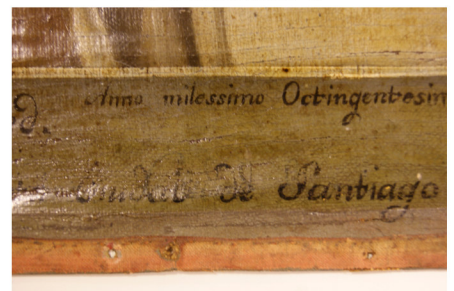 d. Anno milessimo Octingentesim
de Santiago